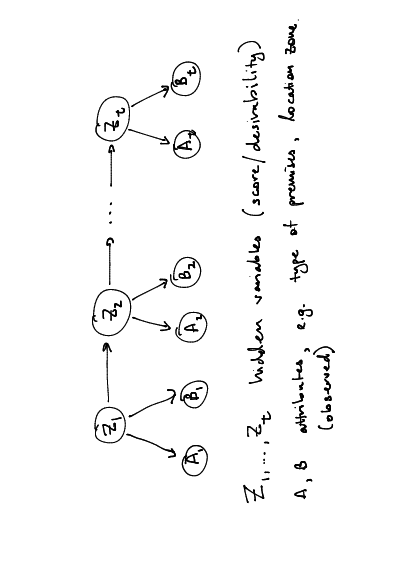 Z₁ Z₂ ... Z_t
A₁ B₁ A₂ B₂ A_t B_t
Z₁,...,Z_t hidden variables (score/desirability)
A, B attributes, e.g. type of premises, location zone.
(observed)